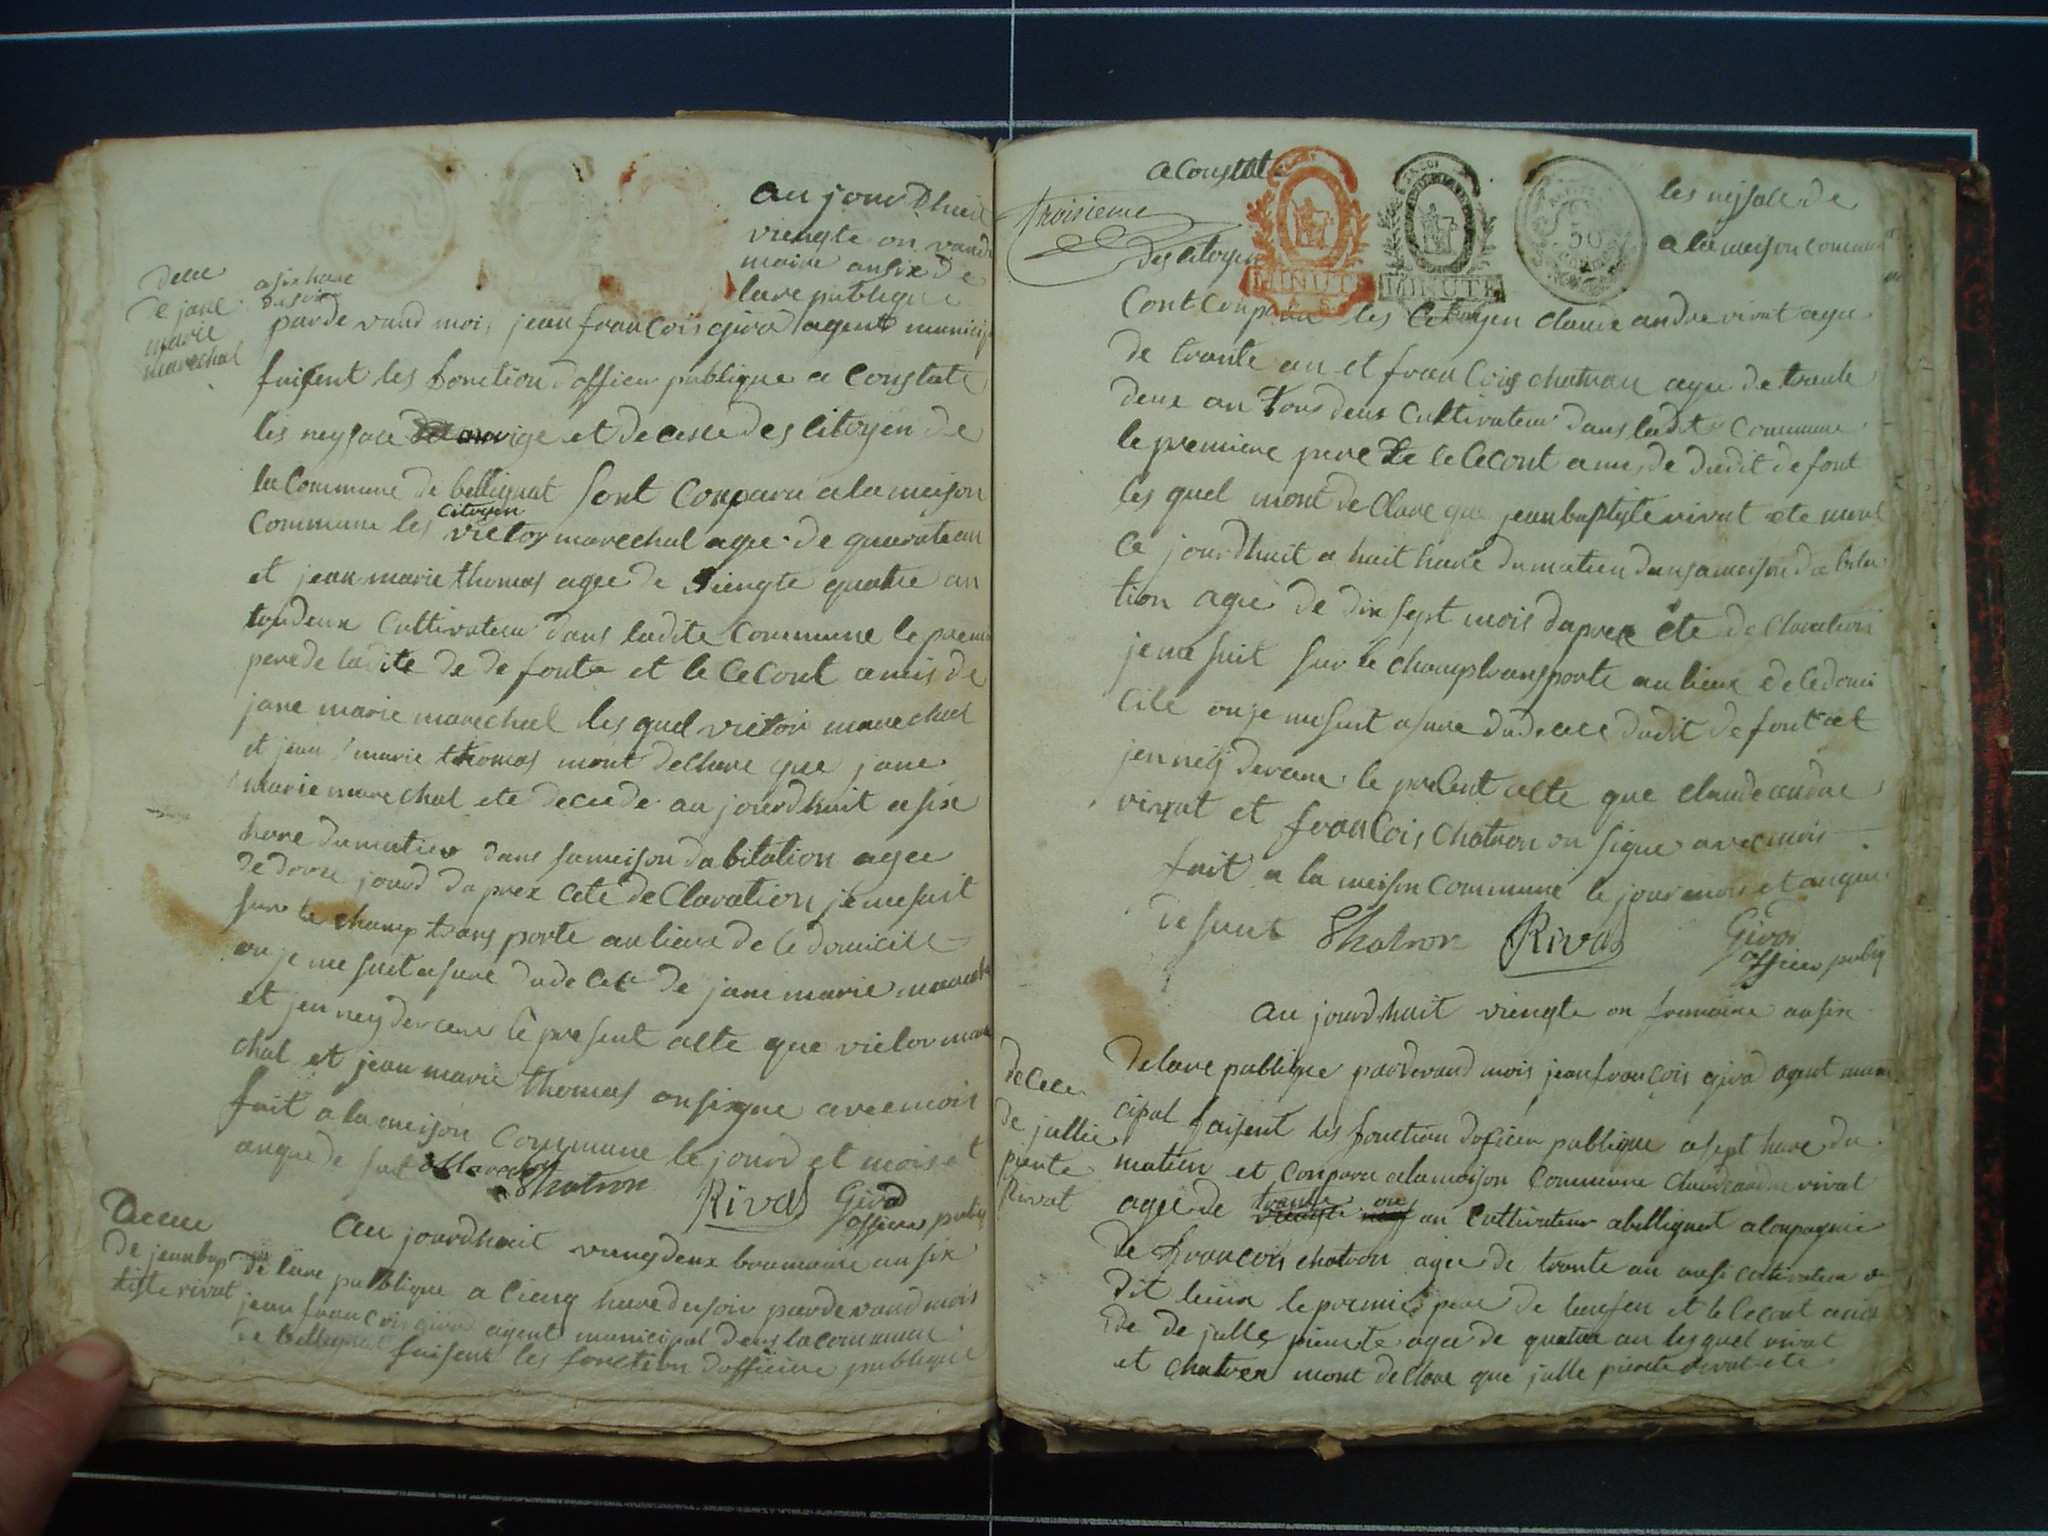 au jourdhuit
viengte on vande
maire ansix de
lare publique
dece
de jane
marie
marechal
a six hare
du soir
parde vand moi, jean francois givà agent municip
faisent les fonction dofficier publique a constate
les neysace et decese des citoyen de
la Commune de bellignat sont conparu a la meison
commune les citoyen victor marechal agee de quarate an
et jean marie thomas agee de viengte quatre an
toudeux cultivateur dans ladite commune le premie
pere de ladite de de fonte et le cecont amis de
jane marie marechal les quel victoir marechal
et jean marie thomas mont declare que jane
marie marechal ete decede au jourdhuit a six
hare dumatien dans sameison dabitation agee
de dorse jourd daprex cete declaration je mesuit
sur le champ trans porte aulieux de le domicile
ou je me suit asure dudecet de jane marie marech
et jen ney derceu le present alte que victor mare
chal et jean marie thomas on signe avec mois
fait a la meison commune le jourd et mois et
anque de sut Marechal
Thatron Rivat Girod
officier publiq
Decese
de jeanbap
tiste rivat
au jourdhuit viengdeux brumaire an six
de lare publique a cienq hare dusoir pardevand mois
jean francois givà agent municipal dans lacommune
de bellignat faisent les fonction dofficier publique
a constat les neysace de
troisieme
des citoyen a la meison commune
MINUTE
MINUTE
50
cont conparu les citoyen claude andre rivat agee
de trante an et francois chatron agee de trante
deux an tous deux cultivateur dans ladite commune
le premiere pere de le cecont amis de dudit de font
les quel mont declare que jean baptiste rivat ete mort
ce jourdhuit a huit hare dumatien dansameison dabita
tion agee de dix sept mois daprex cete declaration
je me suit sur le champ transporte aulieux de ledomi
cile ou je mesuit asure dudecce dudit de font et
jen neij derceu le present alte que claude andre
rivat et francois chatron on signe avec mois
fait a la meison commune le jour mois et anque
desut Thatron Rivat Girod
officier publiq
au jourdhuit viengte on frumaire an six
decece
de jullie
pierete
Rivat
delare publique pardevand mois jean francois givà agent muni
cipal faisent les fonction doficier publique a sept hare du
matien et conparu alameison commune claude andre rivat
agee de trante on an cultivateur abellignat aconpagnie
de francois chatron agee de trante an ausi cultivateur o
dit lieux le premie pere de lanfen et le cecont amis
de de julle pierete agee de quatre an lesquel rivat
et chatron mont declare que julle pierete rivat ete